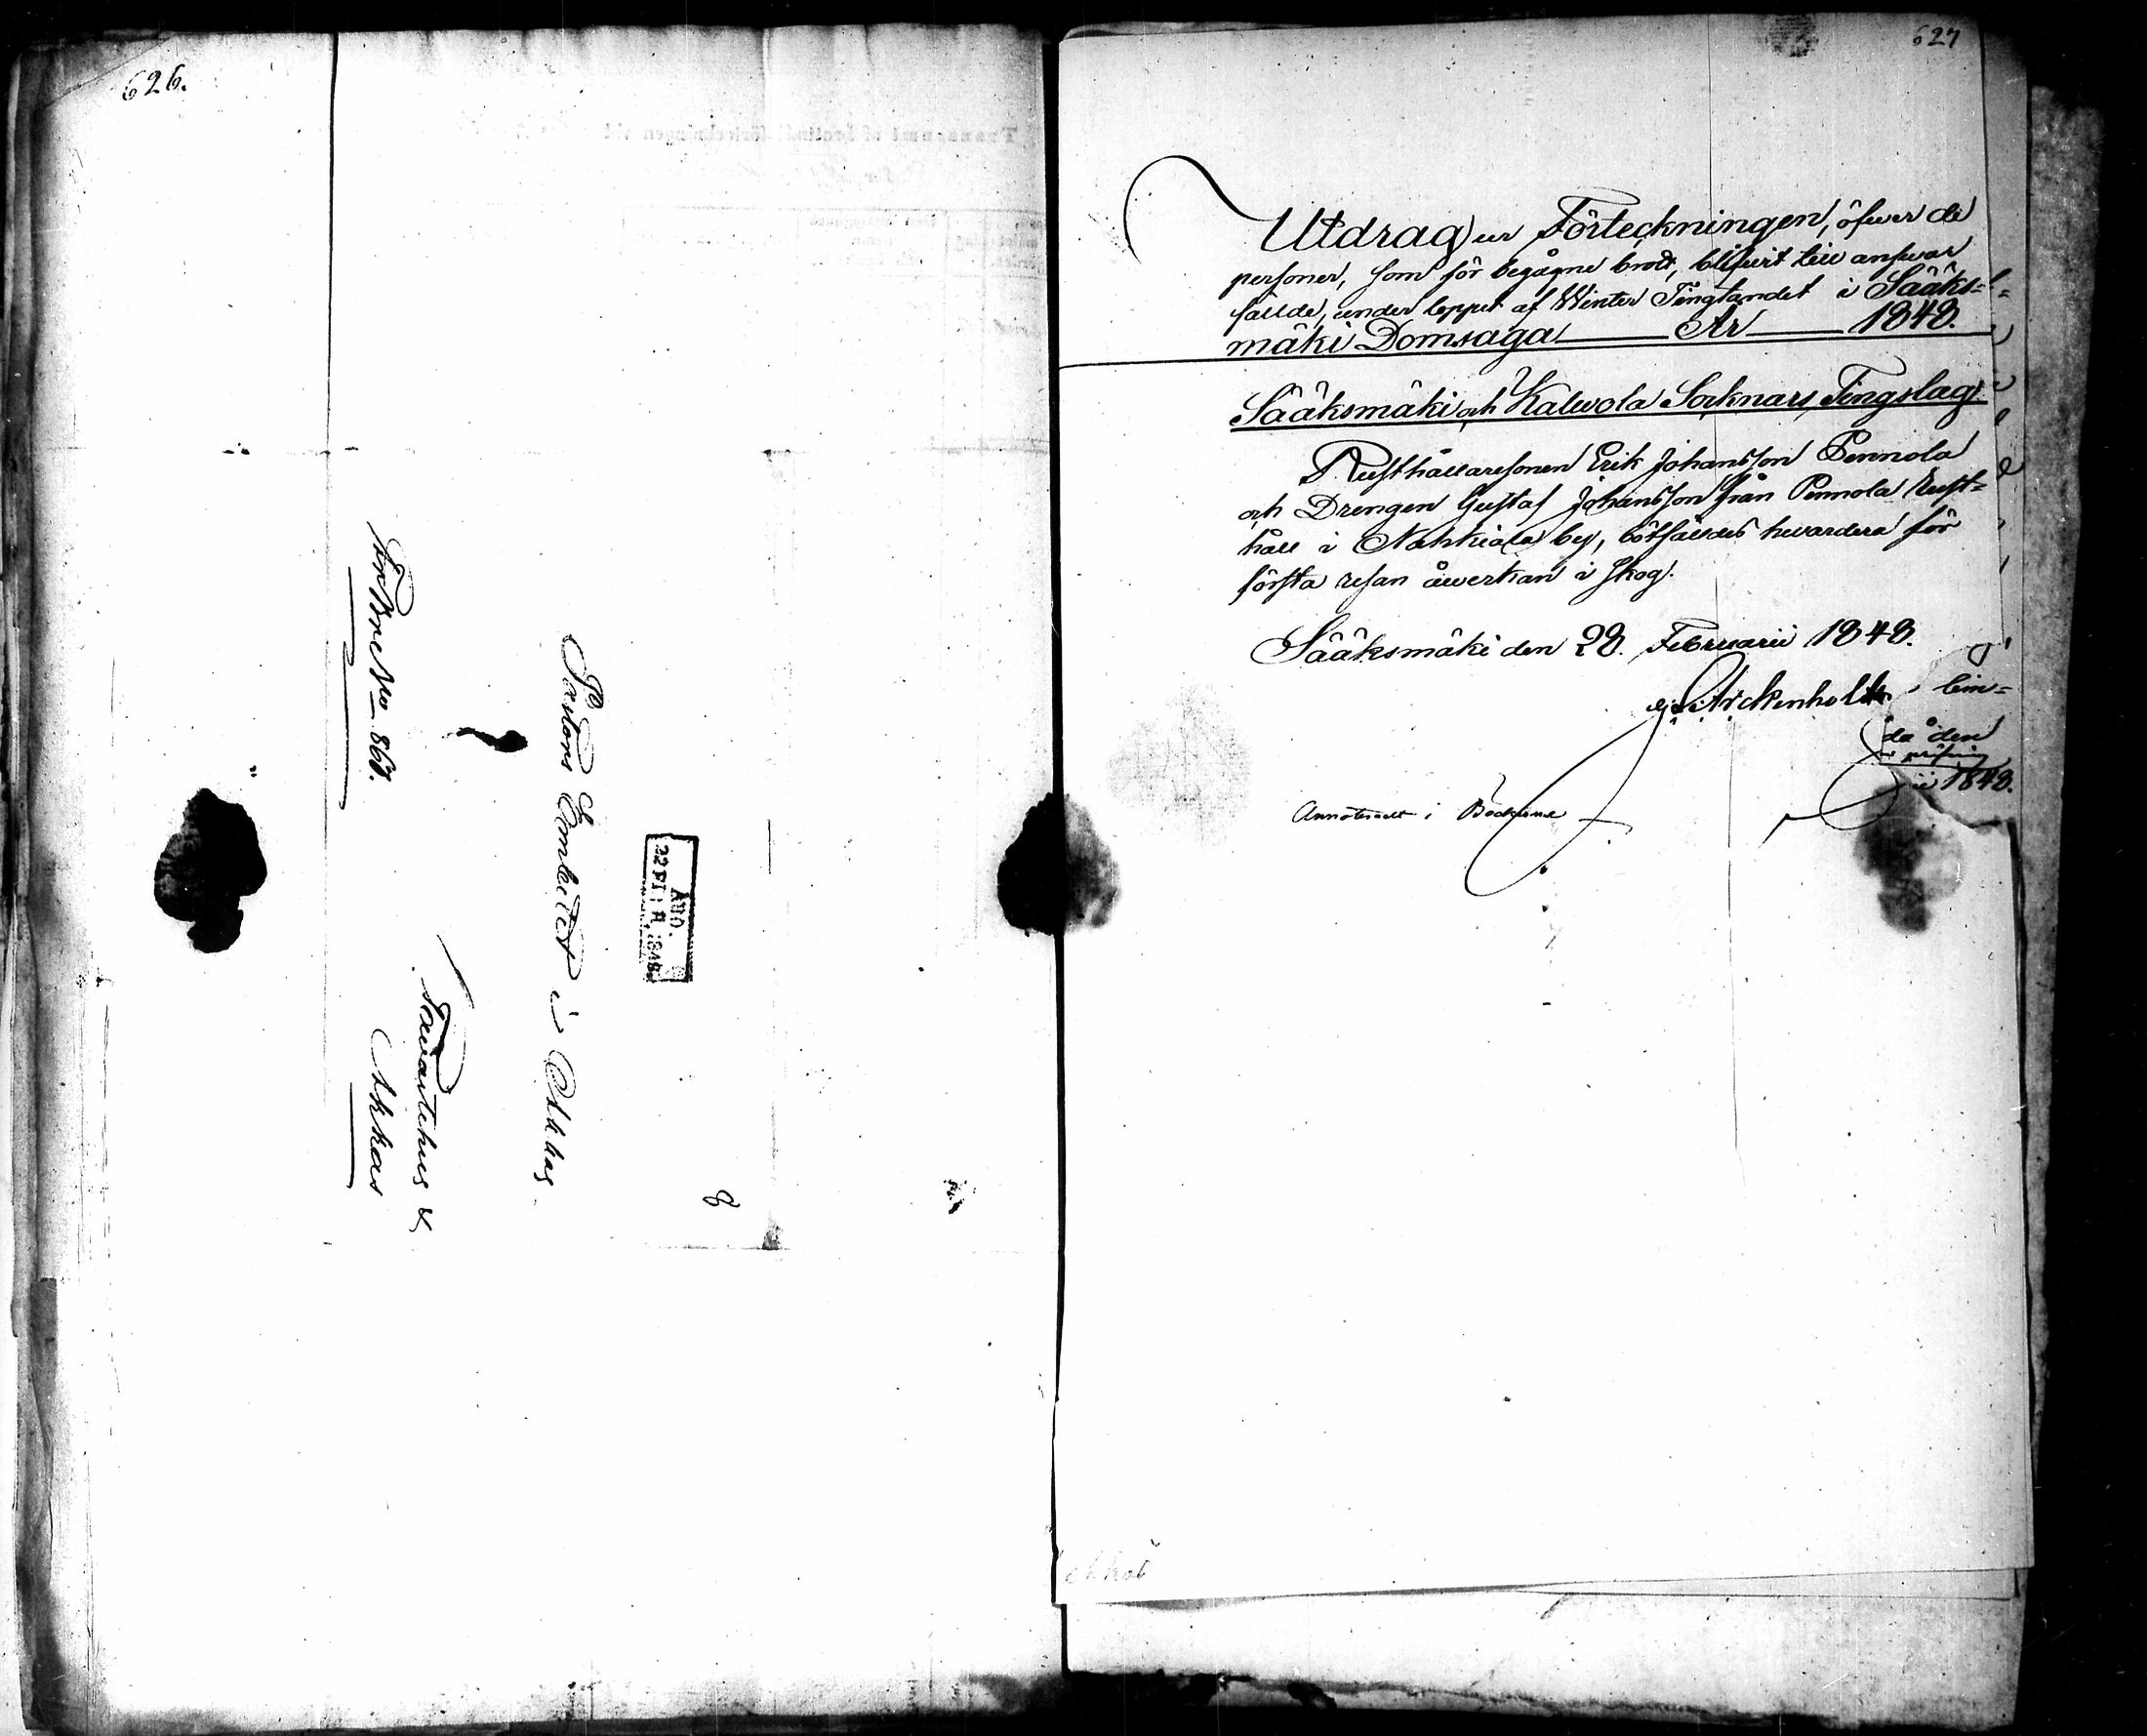 626.
Pastors Embetet i Akkas
Tawastehus &
Akkas
ÅBO.
1848
8
627
Utdrag ur Förteckningen, öfwer de
personer, som för begågne brott, blifwit till answar
fällde, under loppet af Winter Tingtandet i Sääks=
mäki Domsaga År 1848.
Sääksmäki och Kalwola Socknars Tingslag.
Rusthållaresonen Erik Johansson Pennola
och Drengen Gustaf Johansson från Pennola Rust=
håll i Nahkiala by, bötfälldes hwardera för
första resan åwerkan i skog.
Sääksmäki den 28. Februarii 1848.
Arckenholtz
Annoteradt i Böckerne
då den
1848.